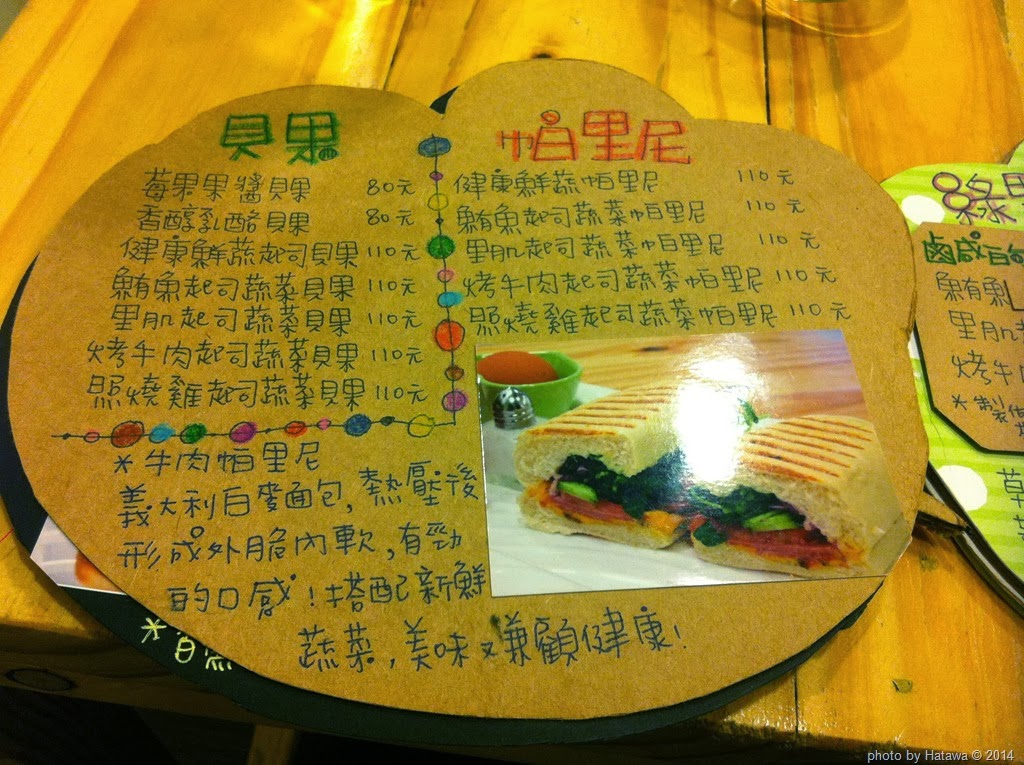 貝果
莓果果醬貝果 80元
香醇乳酪貝果 80元
健康鮮蔬起司貝果 110元
鮪魚起司蔬菜貝果 110元
里肌起司蔬菜貝果 110元
烤牛肉起司蔬菜貝果 110元
照燒雞起司蔬菜貝果 110元
帕里尼
健康鮮蔬帕里尼 110元
鮪魚起司蔬菜帕里尼 110元
里肌起司蔬菜帕里尼 110元
烤牛肉起司蔬菜帕里尼 110元
照燒雞起司蔬菜帕里尼 110元
*牛肉帕里尼
義大利白麥麵包,熱壓後
形成外脆內軟,有勁
的口感!搭配新鮮
蔬菜,美味又兼顧健康!
鹹百
鮪魚
里肌
烤牛
*製
photo by Hatawa © 2014